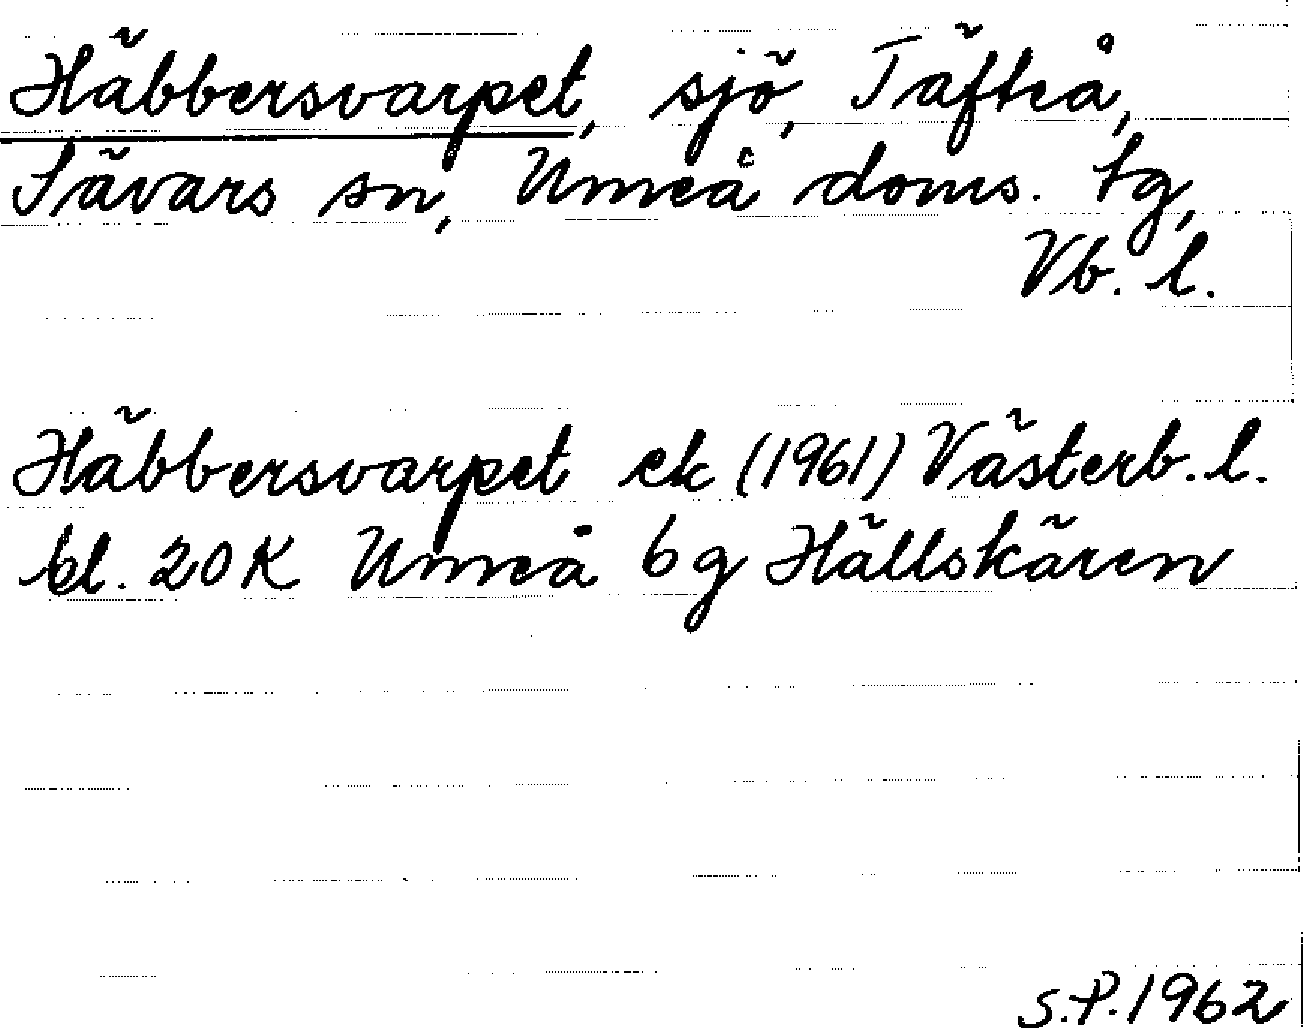 Häbbersvarpet, sjö, Täfteå,
Sävars sn, Umeå doms. tg,
Vb. l.
Häbbersvarpet ek (1961) Västerb. l.
bl. 20 K Umeå 6 g Hällskären
S.P. 1962